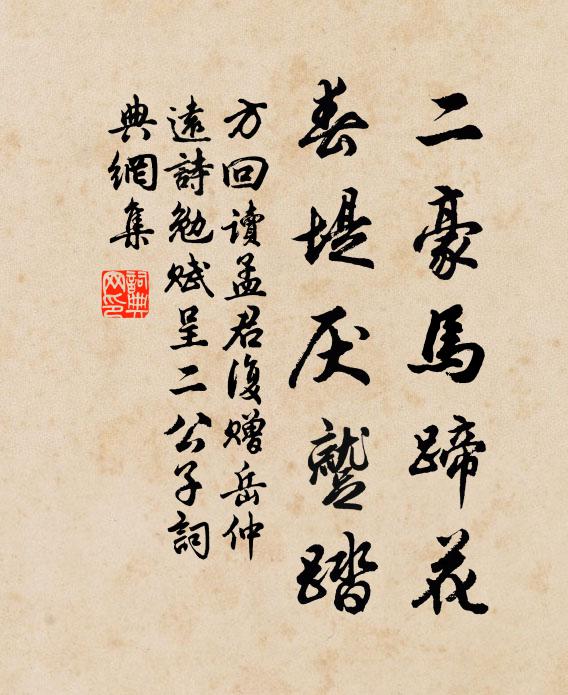 二豪馬蹄花
春堤厌蹔踏
方回讀孟君復贈岳仲
遠詩勉賦呈二公子詞
典網集
詞典网印